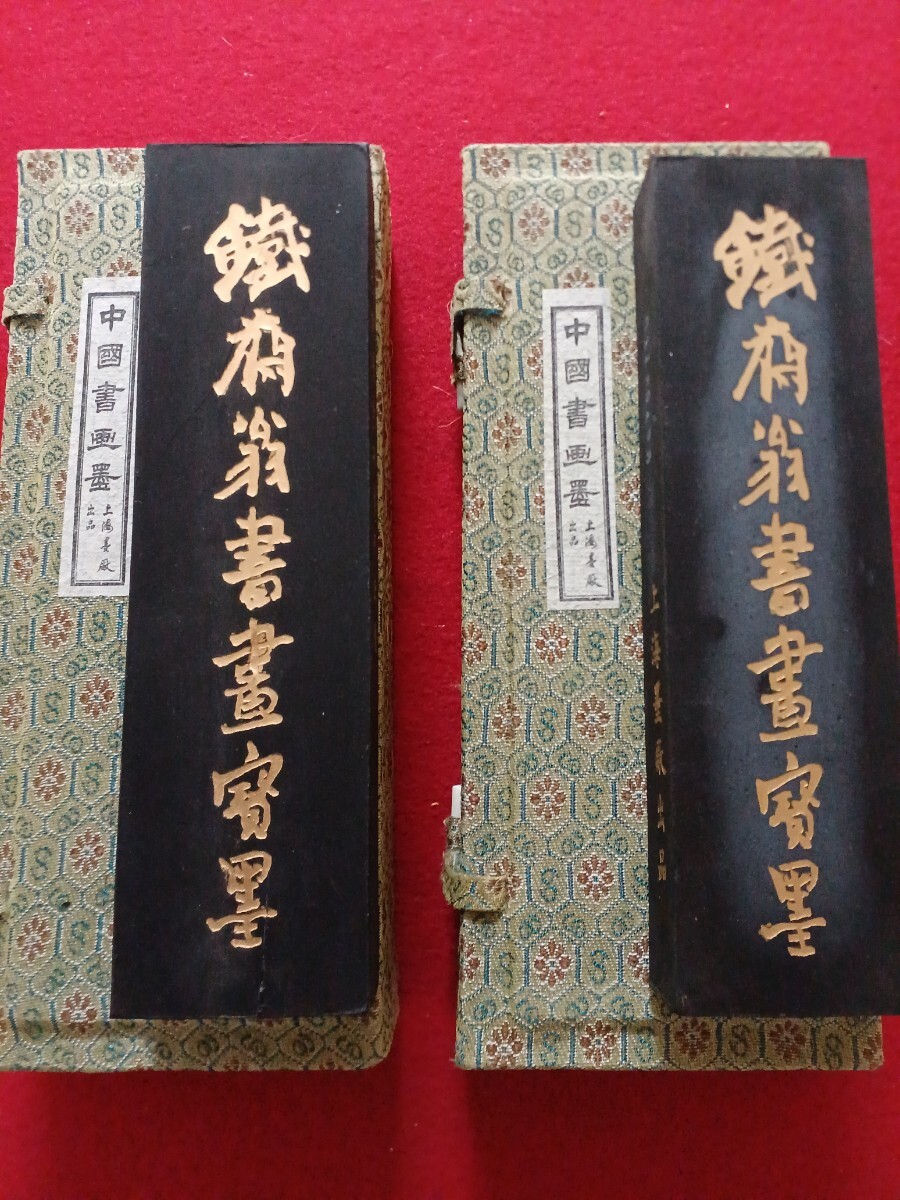 中國書画墨
上海墨厰
出品
鐵齋翁書畫寶墨
中國書画墨
上海墨厰
出品
上海墨厰出品
鐵齋翁書畫寶墨